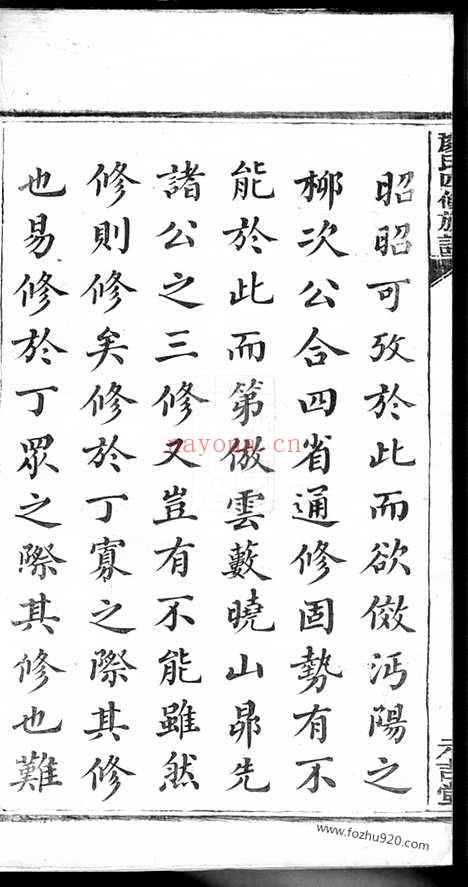 昭昭可攷於此而欲傚沔陽之
柳次公合四省通修固勢有不
能於此而第倣雲藪曉山鼎先
諸公之三修又豈有不能雖然
修則修矣修於丁寡之際其修
也易修於丁眾之際其修也難
氏四修族譜
吉堂
nayona.cn
www.fozhu920.com